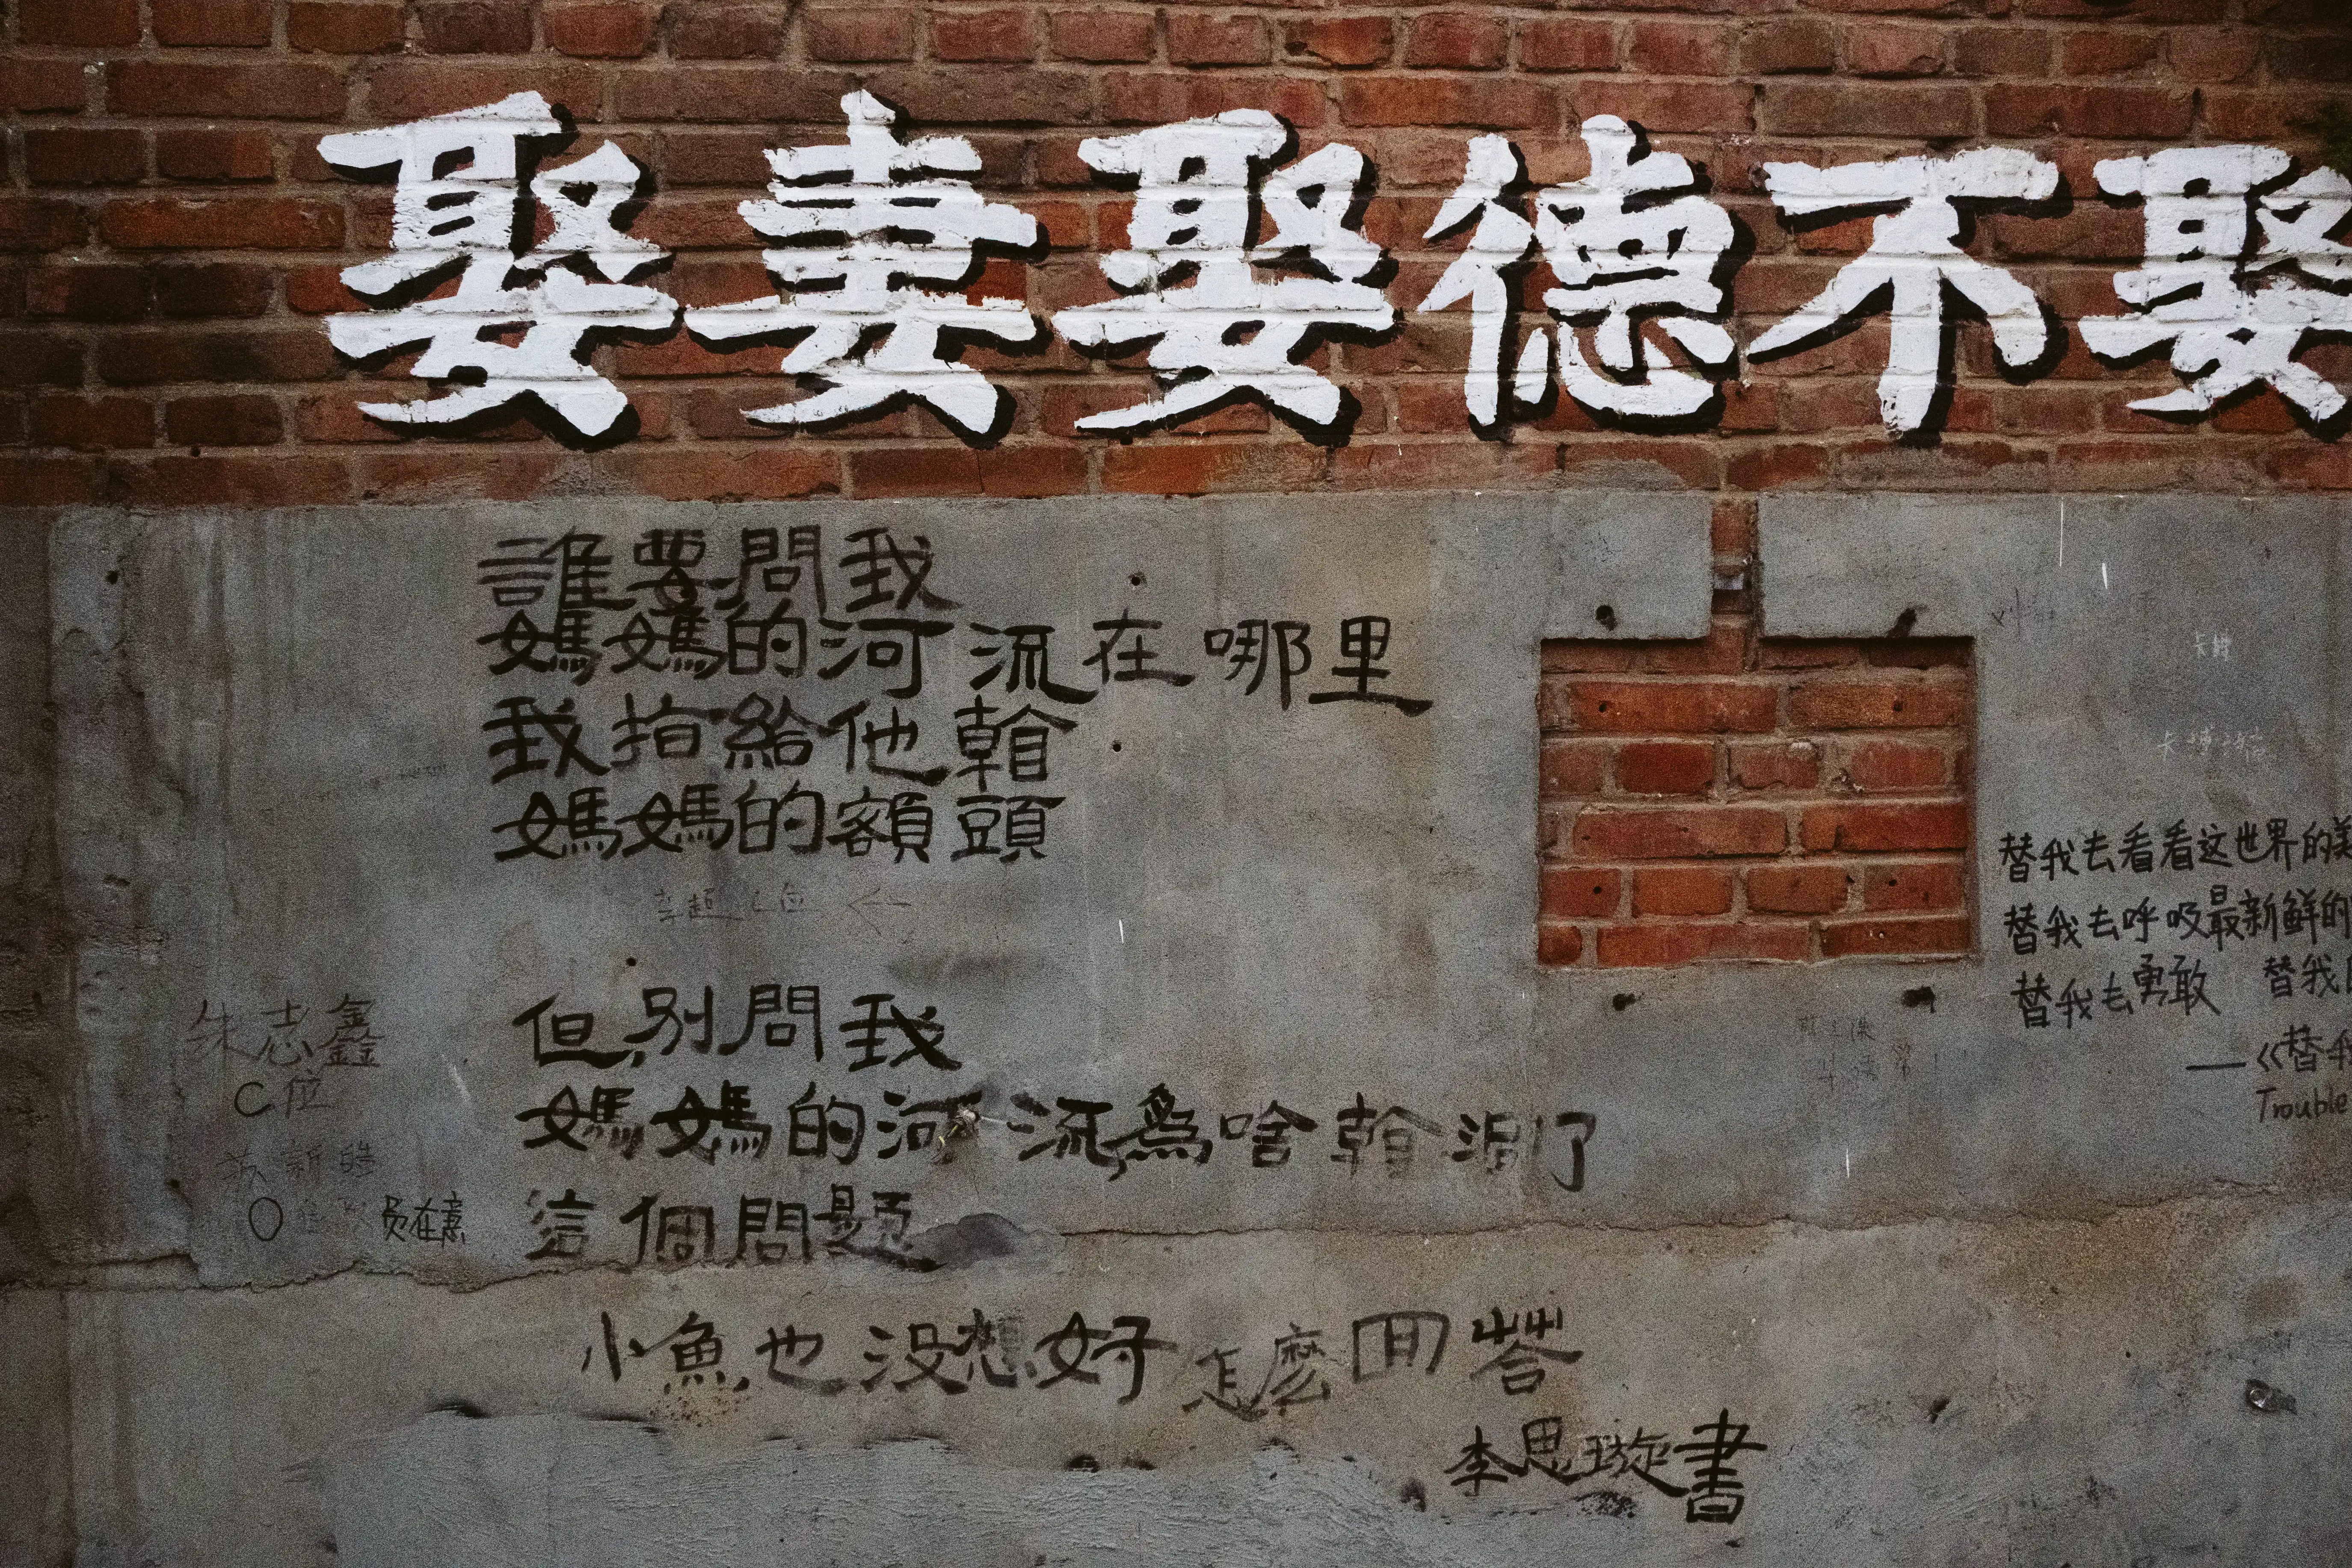 娶妻娶德不娶
誰要問我
媽媽的河流在哪里
我指給他看
媽媽的額頭
但,別問我
媽媽的河流為啥乾涸了
這個問題
小魚也没想好怎麼回答
李思璇書
朱志鑫
C位
苏新皓
替我去看看这世界的美
替我去呼吸最新鲜的
替我去勇敢 替我
——《替我
Trouble